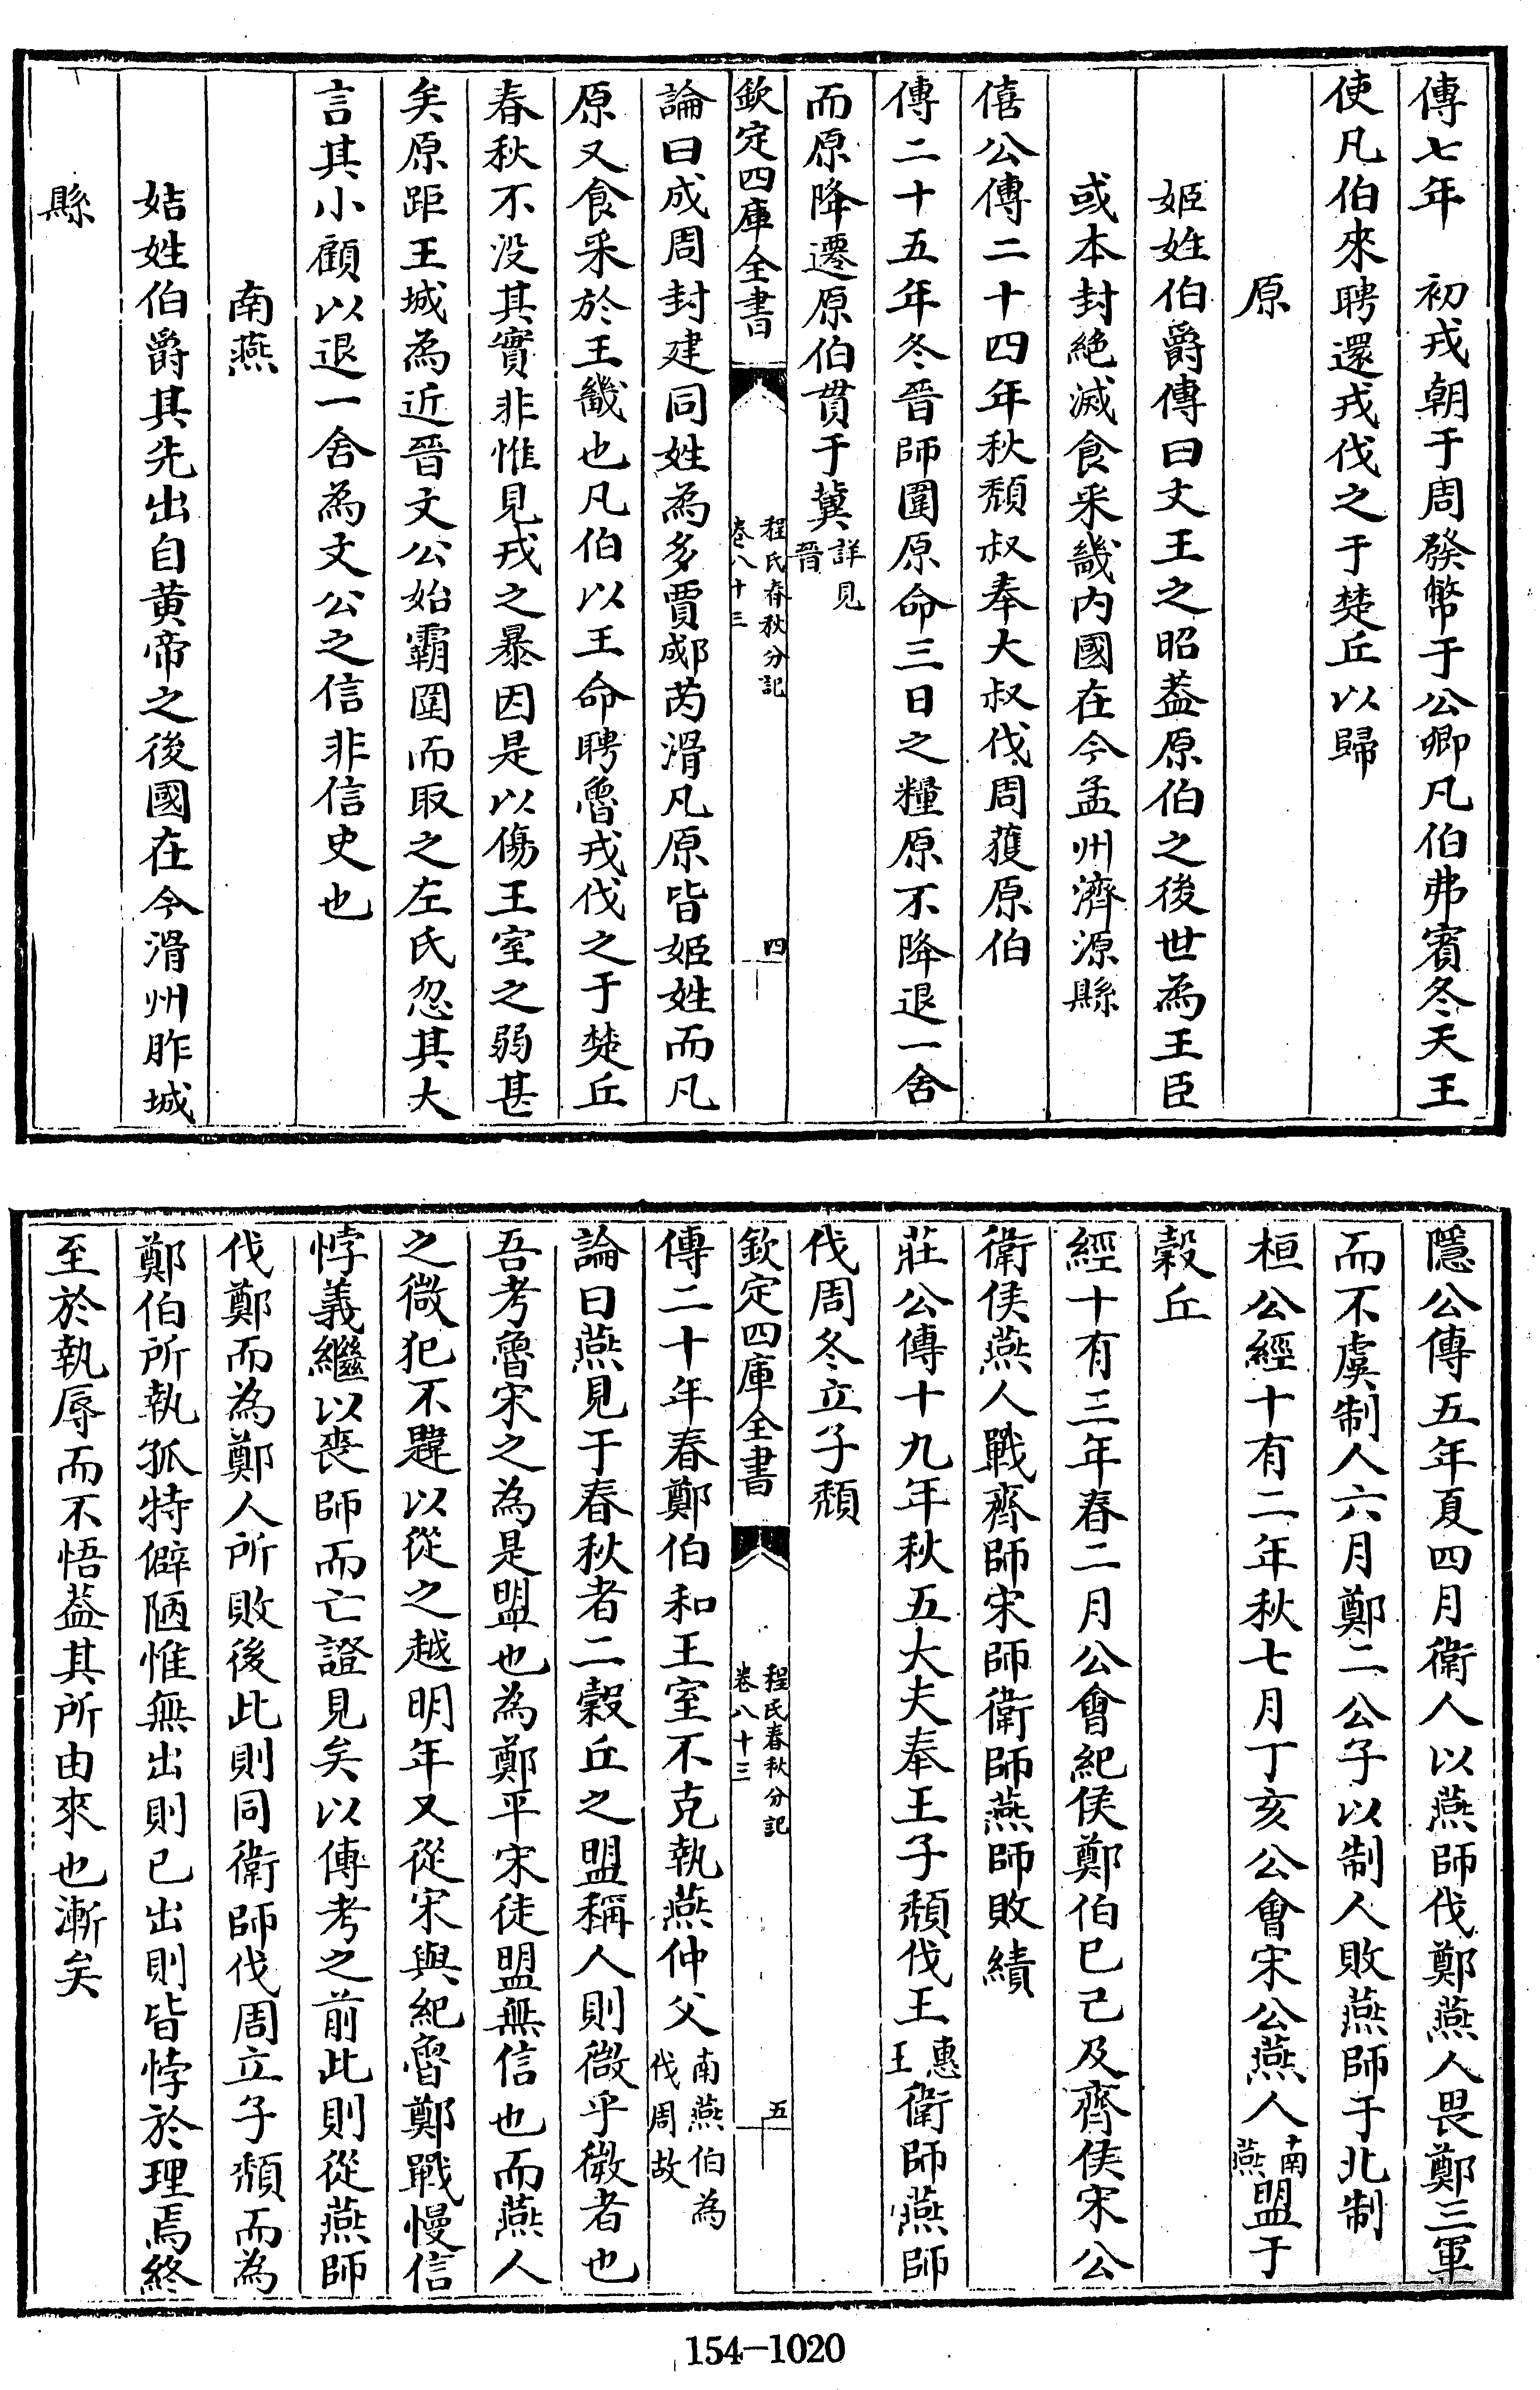 傳七年　初戎朝于周發幣于公卿凡伯弗賓冬天王
使凡伯來聘還戎伐之于楚丘以歸
原
姬姓伯爵傳曰文王之昭葢原伯之後世為王臣
或本封絶滅食采畿内國在今孟州濟源縣
僖公傳二十四年秋頽叔奉大叔伐周獲原伯
傳二十五年冬晉師圍原命三日之糧原不降退一舍
而原降遷原伯貫于冀詳見晉
欽定四庫全書
程氏春秋分記
卷八十三
四
論曰成周封建同姓為多賈郕芮滑凡原皆姬姓而凡
原又食采於王畿也凡伯以王命聘魯戎伐之于楚丘
春秋不没其實非惟見戎之暴因是以傷王室之弱甚
矣原距王城為近晉文公始霸圍而取之左氏忽其大
言其小顧以退一舍為文公之信非信史也
南燕
姞姓伯爵其先出自黄帝之後國在今滑州胙城
縣
隱公傳五年夏四月衛人以燕師伐鄭燕人畏鄭三軍
而不虞制人六月鄭二公子以制人敗燕師于北制
桓公經十有二年秋七月丁亥公會宋公燕人南燕盟于
穀丘
經十有三年春二月公會紀侯鄭伯巳己及齊侯宋公
衛侯燕人戰齊師宋師衛師燕師敗績
莊公傳十九年秋五大夫奉王子頽伐王惠王衛師燕師
伐周冬立子頽
欽定四庫全書
程氏春秋分記
卷八十三
五
傳二十年春鄭伯和王室不克執燕仲父南燕伯為伐周故
論曰燕見于春秋者二穀丘之盟稱人則微乎微者也
吾考魯宋之為是盟也為鄭平宋徒盟無信也而燕人
之微犯不韙以從之越明年又從宋與紀魯鄭戰慢信
悖義繼以喪師而亡證見矣以傳考之前此則從燕師
伐鄭而為鄭人所敗後此則同衛師伐周立子頽而為
鄭伯所執孤特僻陋惟無出則已出則皆悖於理焉終
至於執辱而不悟葢其所由來也漸矣
154-1020